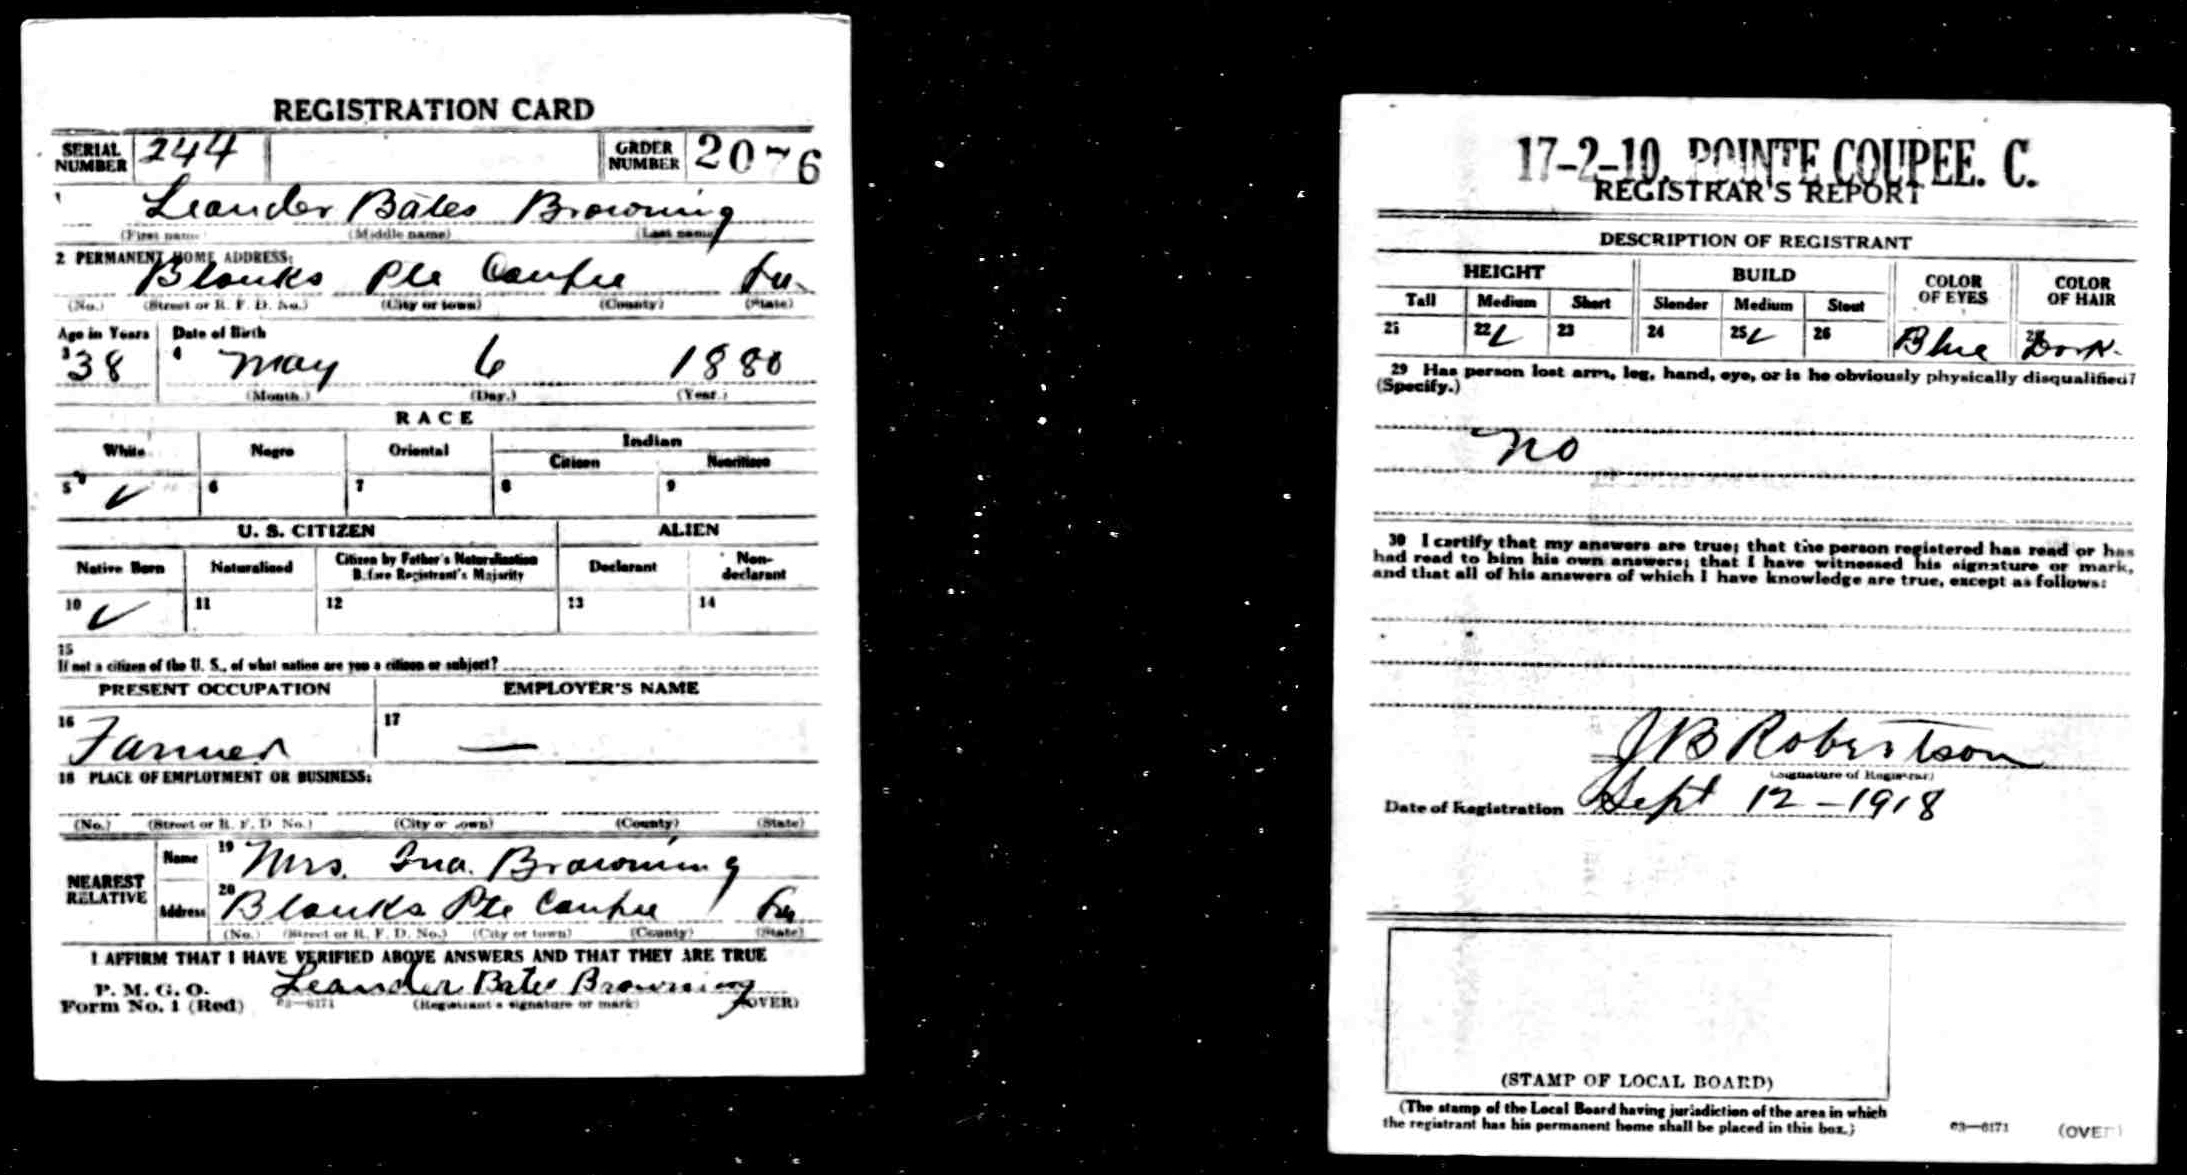 REGISTRATION CARD
SERIAL NUMBER 244 ORDER NUMBER 2076
1 Leander Bates Browning
(First name) (Middle name) (Last name)
2 PERMANENT HOME ADDRESS:
Blanks Pte Coupee La.
(No.) (Street or R. F. D. No.) (City or town) (County) (State)
Age in Years Date of Birth
3 38 4 May 6 1880
(Month.) (Day.) (Year.)
RACE
White Negro Oriental Indian
Citizen Noncitizen
5 ✓ 6 7 8 9
U. S. CITIZEN ALIEN
Native Born Naturalized Citizen by Father's Naturalization Before Registrant's Majority Declarant Non-declarant
10 ✓ 11 12 13 14
15
If not a citizen of the U. S., of what nation are you a citizen or subject?
PRESENT OCCUPATION EMPLOYER'S NAME
16 Farmer 17 —
18 PLACE OF EMPLOYMENT OR BUSINESS:
(No.) (Street or R. F. D. No.) (City or town) (County) (State)
NEAREST RELATIVE Name 19 Mrs. Ina Browning
Address 20 Blanks Pte Coupee La
(No.) (Street or R. F. D. No.) (City or town) (County) (State)
I AFFIRM THAT I HAVE VERIFIED ABOVE ANSWERS AND THAT THEY ARE TRUE
P. M. G. O.
Form No. 1 (Red) 03—6171 Leander Bates Browning
(Registrant's signature or mark) (OVER)
17-2-10. POINTE COUPEE. C.
REGISTRAR'S REPORT
DESCRIPTION OF REGISTRANT
HEIGHT BUILD COLOR OF EYES COLOR OF HAIR
Tall Medium Short Slender Medium Stout
21 22 ✓ 23 24 25 ✓ 26 Blue 28 Dark
29 Has person lost arm, leg, hand, eye, or is he obviously physically disqualified?
(Specify.)
no
30 I certify that my answers are true; that the person registered has read or has
had read to him his own answers; that I have witnessed his signature or mark,
and that all of his answers of which I have knowledge are true, except as follows:
J B Robertson
(Signature of Registrar)
Date of Registration Sept 12 - 1918
(STAMP OF LOCAL BOARD)
(The stamp of the Local Board having jurisdiction of the area in which
the registrant has his permanent home shall be placed in this box.)
03—6171 (OVER)